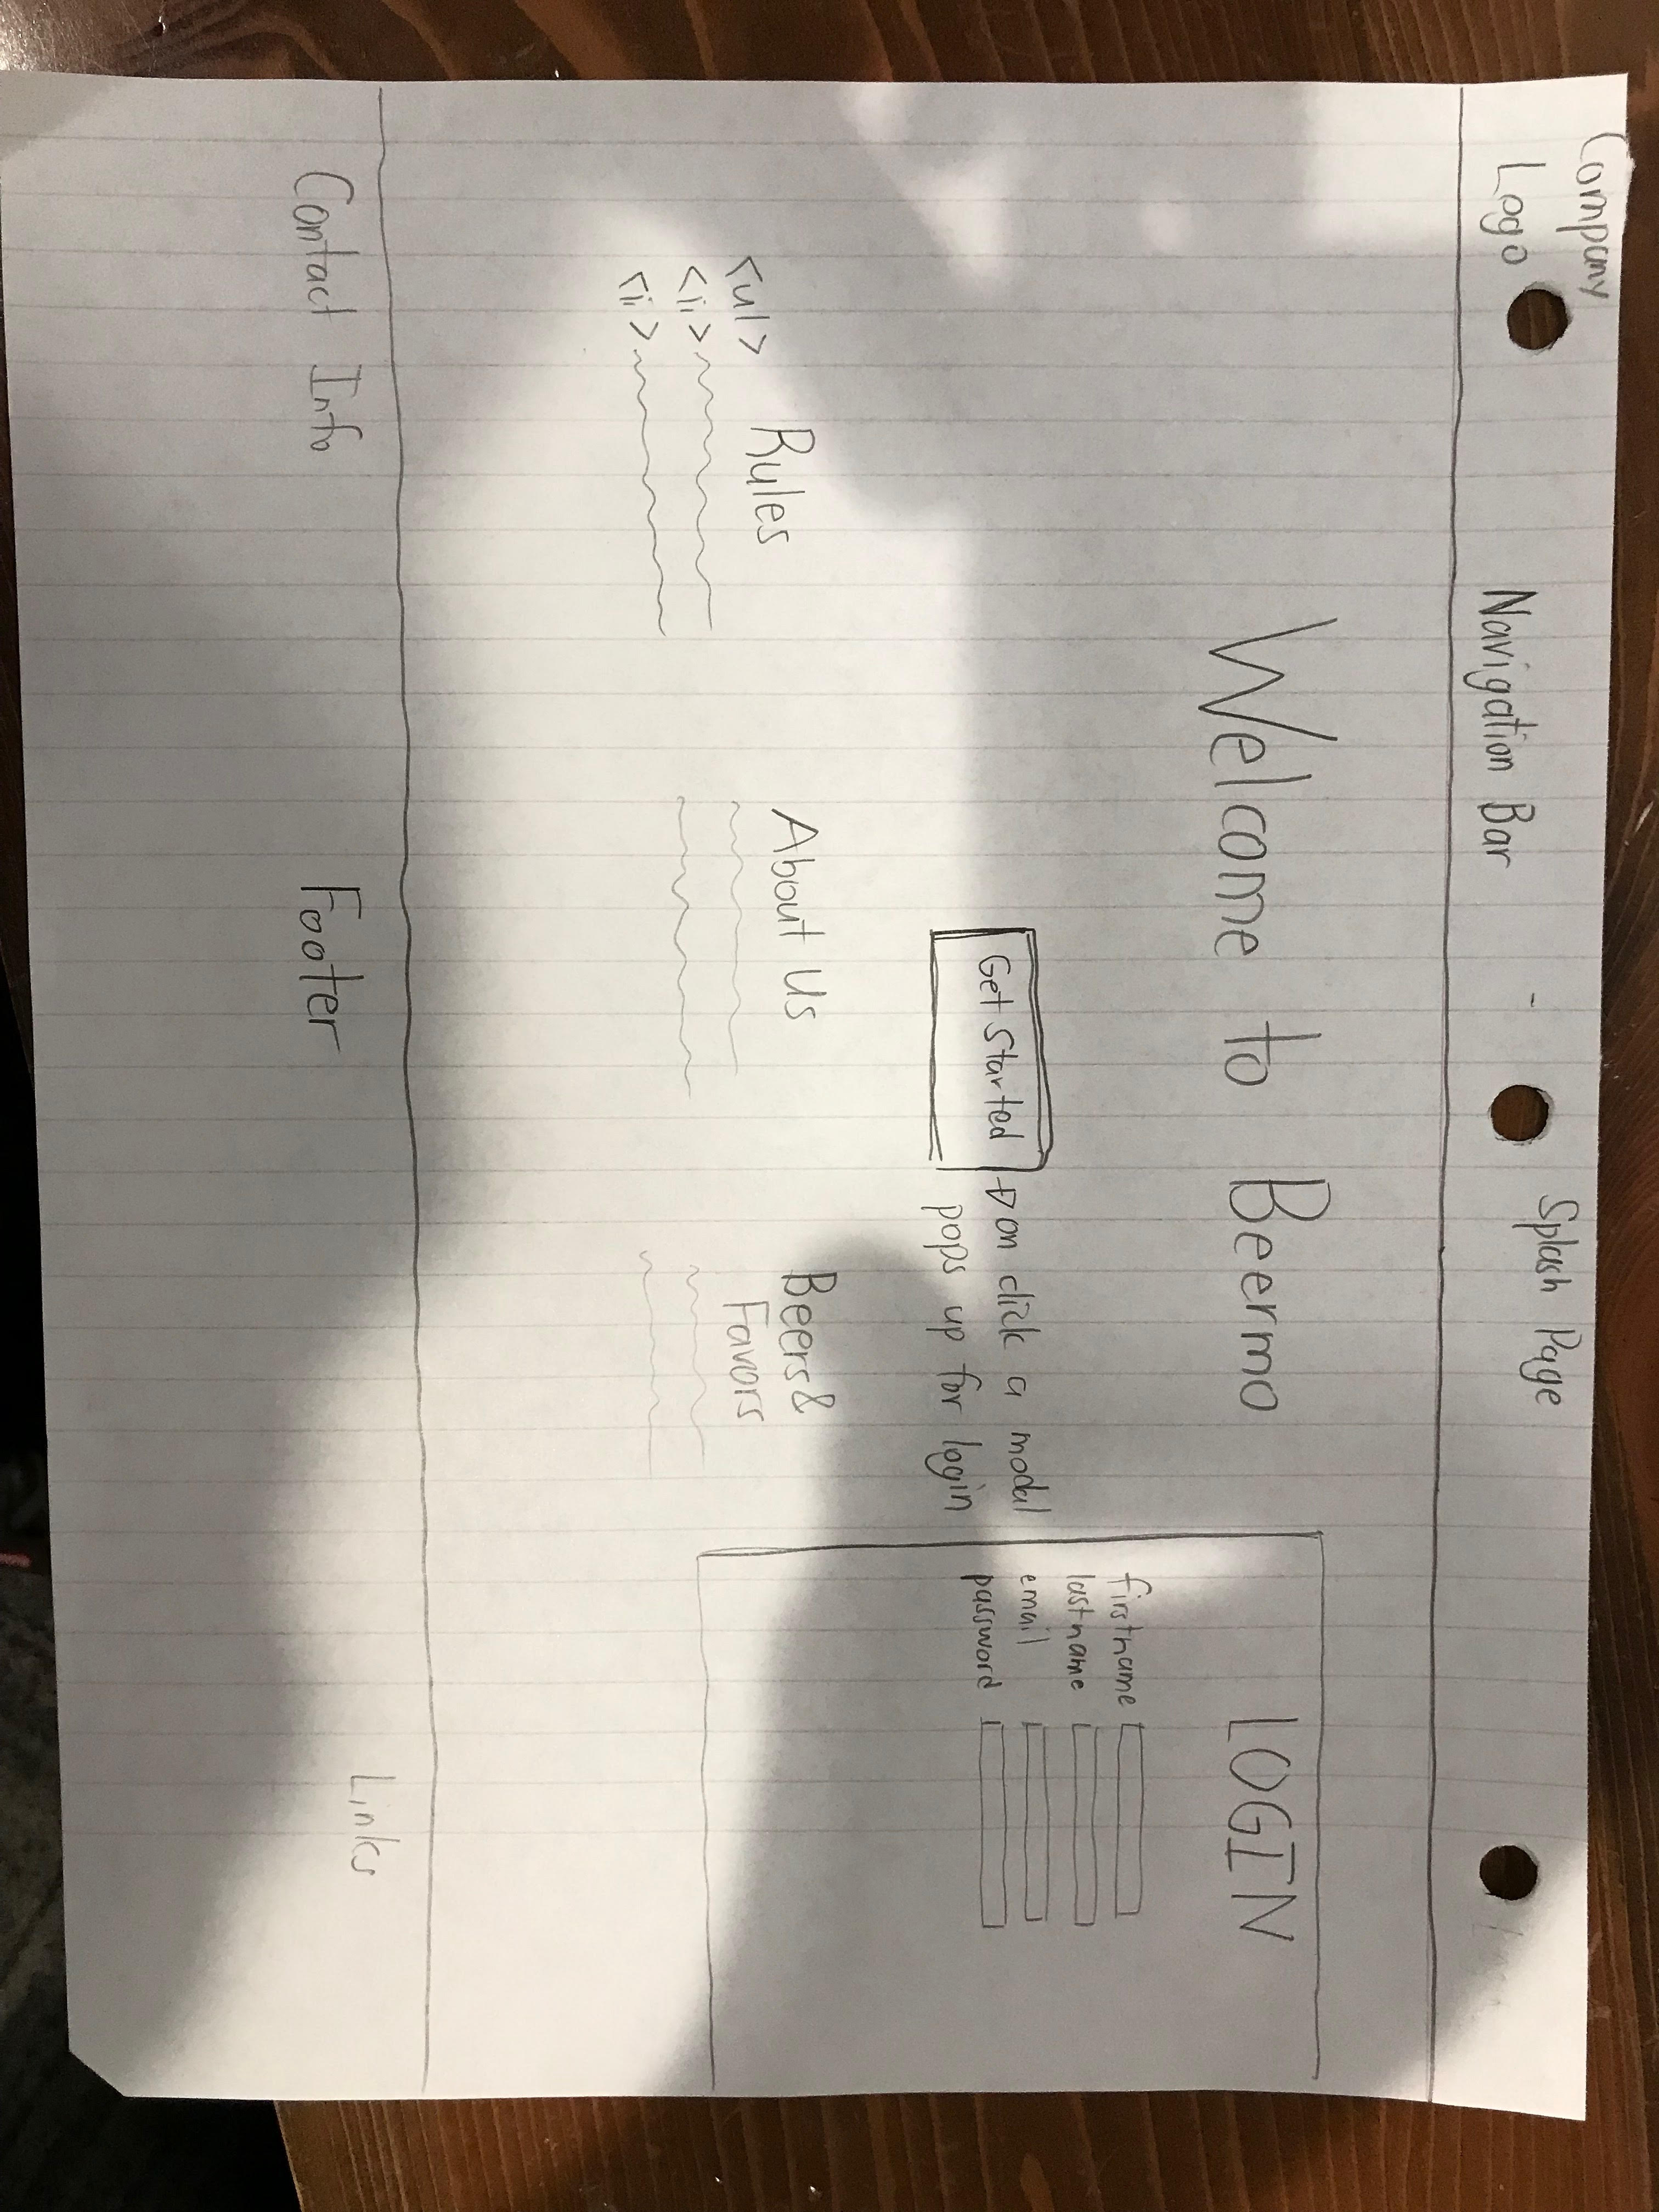 Company
Logo
Navigation Bar
Splash Page
Welcome to Beermo
Get Started
on click a modal
pops up for login
LOGIN
firstname
lastname
email
password
Rules
<ul>
<li>
<li>
About Us
Beers &
Favors
Contact Info
Footer
Links